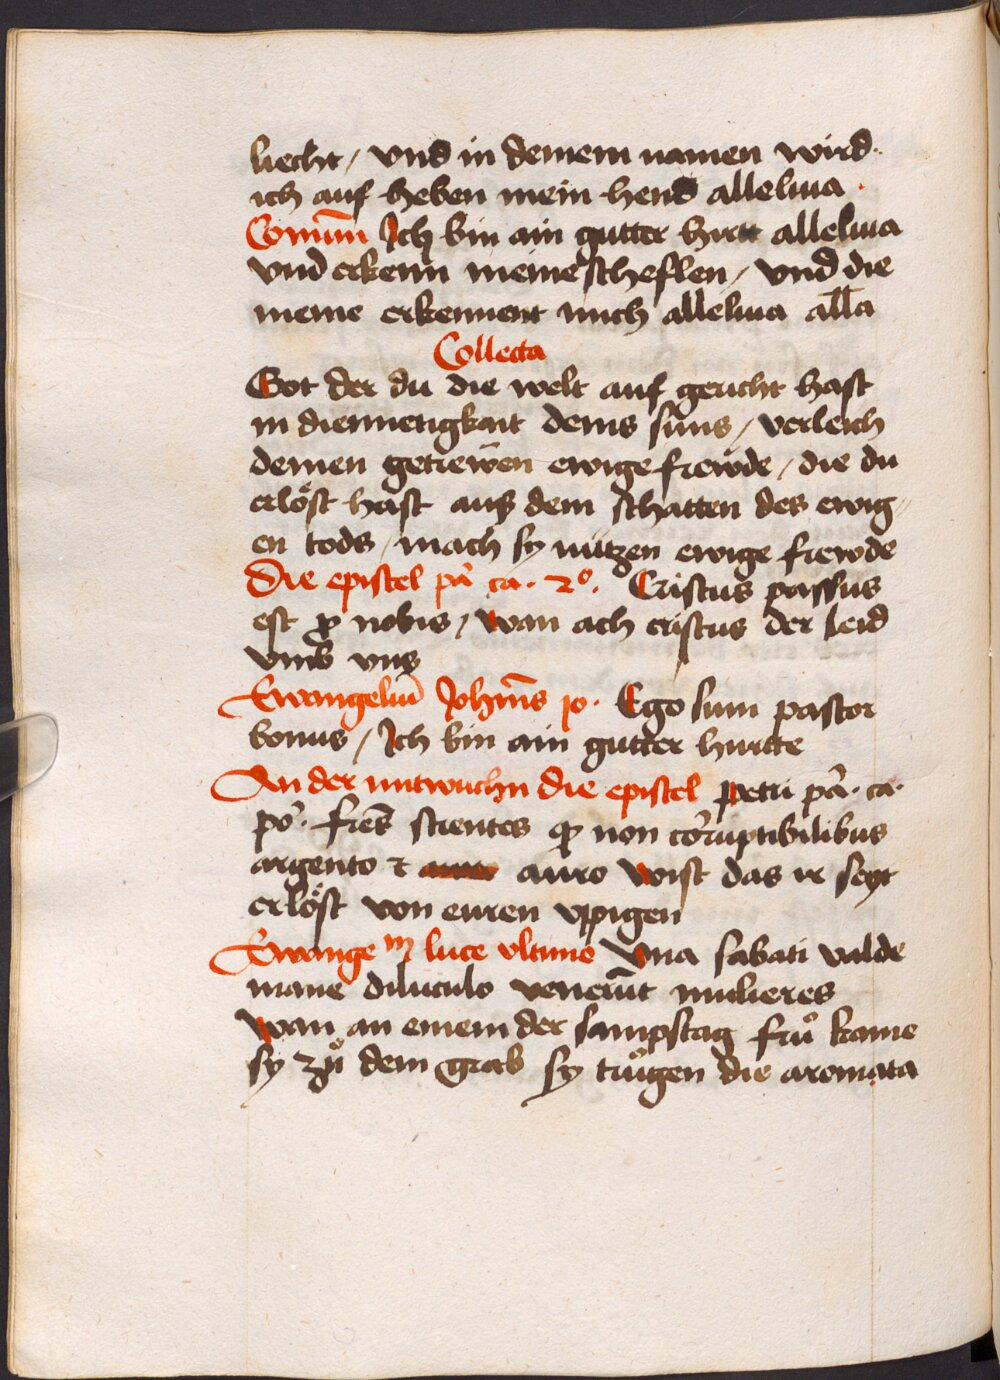 liecht / vnd in deinem namen wird
ich auf heben mein hend alleluia
Comun̄ Jch bin ain gutter hirtt alleluia
vnd erkenn meine scheflen / vnd die
meine erkennent mich alleluia all̄a
Collecta
Got der du die welt auf gericht hast
in diemietigkait deins suns / verleich
deinen getrewēn ewige frewde / die du
erlöst hast aus dem schatten des ewig
en tods / mach sy nützen ewige frewde
Die epistel pͣ ca. 2º. Cristus passus
est ꝓ nobis / wan ach cristus der leid
vmb vns
Ewangeliū Johīns jo. Ego sum pastor
bonus / Jch bin ain gutter hurtte
An der mitwuchn die epistel petri pͣ. ca.
po. fres̄ scientes ꝙ non cor̄uptibilibus
argento ⁊ auro wist das ir seyt
erlöst von euren vppigen
Ewange m̄ luce vltimo Vna sabati valde
mane diluculo venerūt mulieres
wan an einem der sampstag frů kame
sy zů dem grab sy trůgen die aromata